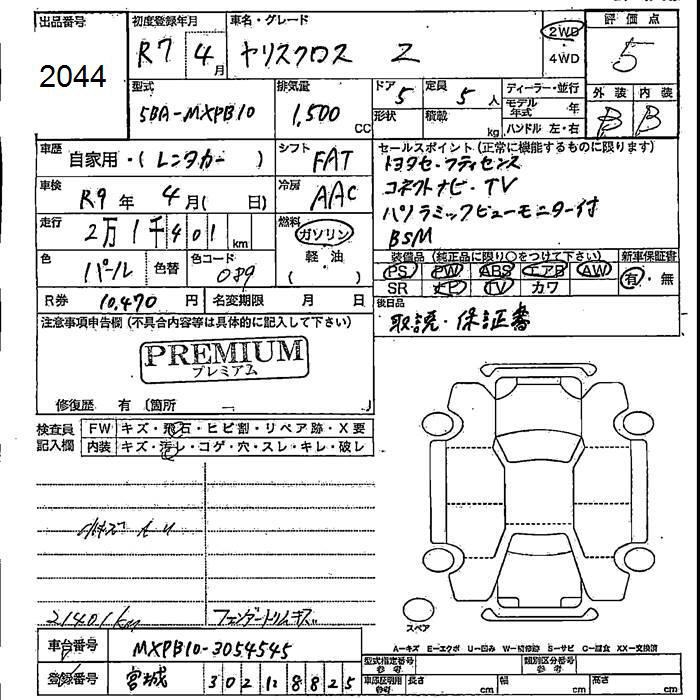 出品番号 2044
初度登録年月 R7 4月
車名・グレード ヤリスクロス Z
2WD 4WD
評価点 5
外装 内装
B B
型式 5BA-MXPB10
排気量 1,500 CC
ドア 5 形状
定員 5人 積載 kg
ディーラー・並行
モデル年式 年
ハンドル 左・右
車歴 自家用・(レンタカー)
シフト FAT
車検 R9年 4月(日)
冷房 AAC
走行 2万1千401km
燃料 ガソリン 軽油 ( )
色 パール 色替
色コード 089
R券 10,470円
名変期限 月 日
セールスポイント(正常に機能するものに限ります)
トヨタセーフティセンス
コネクトナビ・TV
パノラミックビューモニター付
BSM
装備品(純正品に限り○をつけて下さい) 新車保証書
PS PW ABS エアB AW 有・無
SR ナビ TV カワ
後日品
取説・保証書
注意事項申告欄(不具合内容等は具体的に記入して下さい)
PREMIUM
プレミアム
修復歴 有(箇所
検査員記入欄
FW キズ・飛石・ヒビ割・リペア跡・X要
内装 キズ・汚レ・コゲ・穴・スレ・キレ・破レ
小キズ AU
21401km
フェンダートリムキズ
スペア
A−キズ E−エクボ U−凹み W−補修跡 S−サビ C−腐食 XX−交換済
車台番号 MXPB10-3054545
登録番号 宮城 302 18825
型式指定番号参考 類別区分番号参考
車庫証明用参考 長さ cm 幅 cm 高さ cm